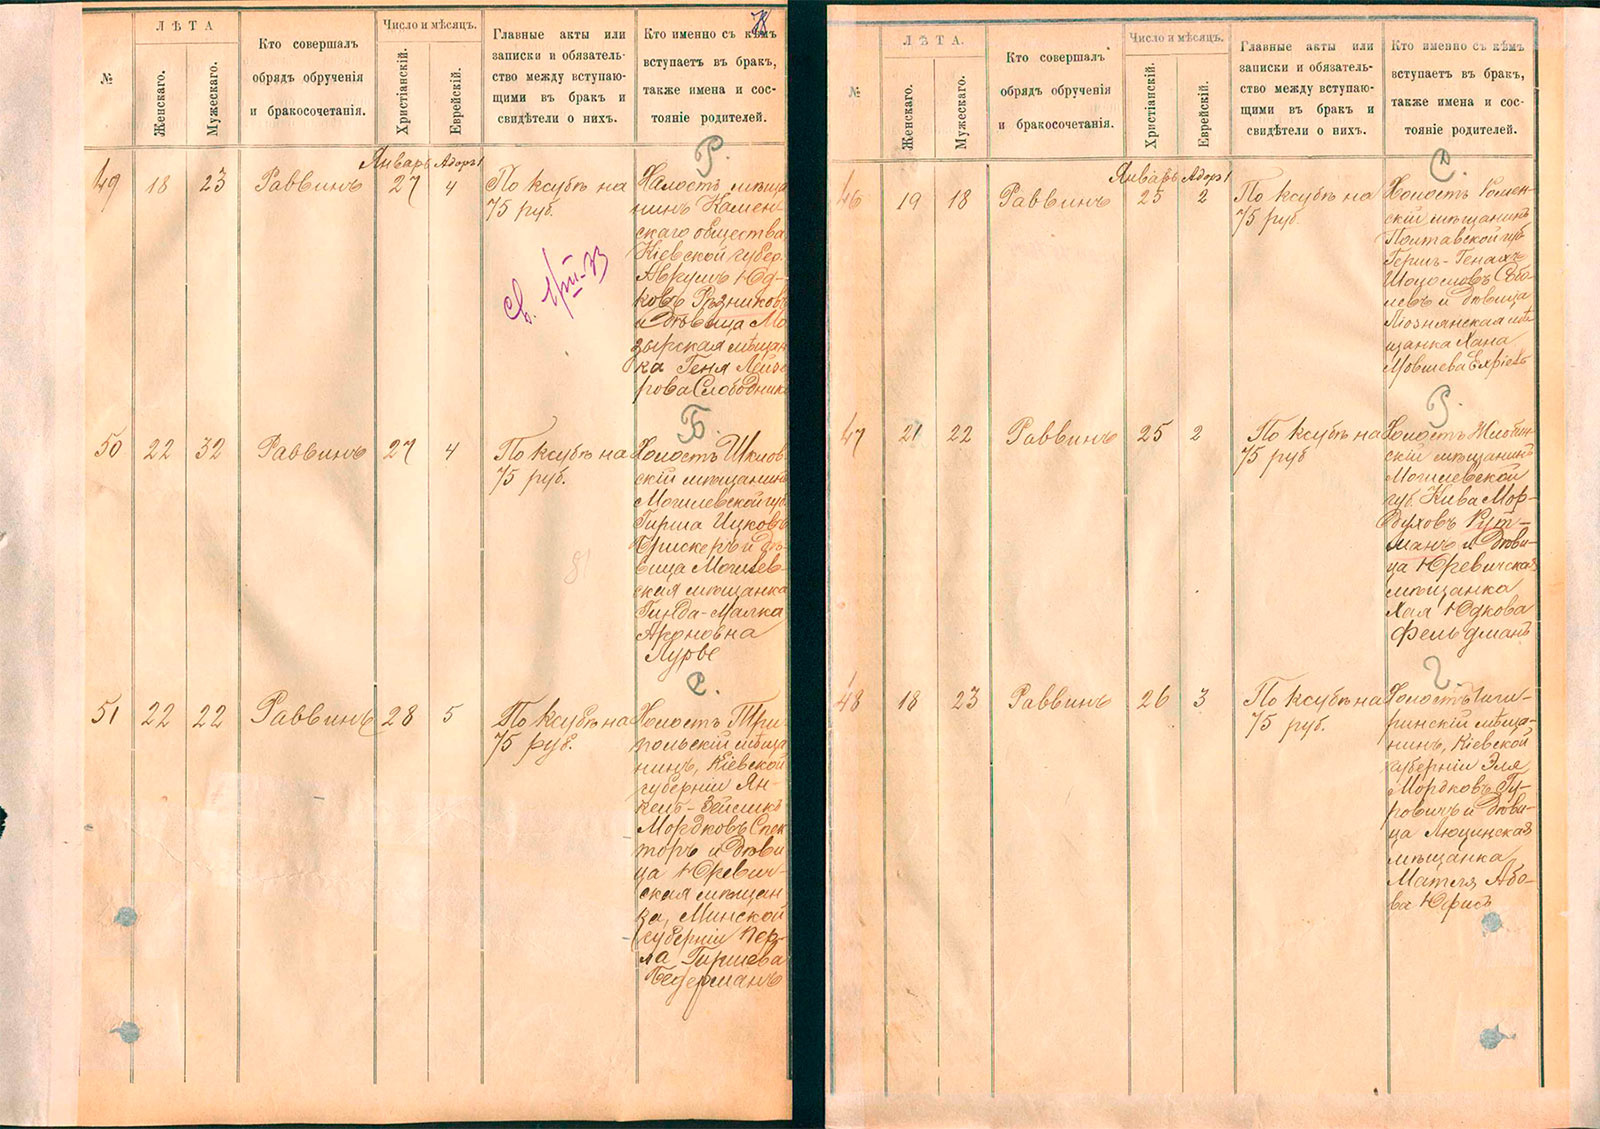 ЛѢТА
Число и мѣсяцъ.
№
Женскаго.
Мужескаго.
Кто совершалъ
обрядъ обрученія
и бракосочетанія.
Христіанскій.
Еврейскій.
Главные акты или
записки и обязатель-
ство между вступаю-
щими въ бракъ и
свидѣтели о нихъ.
Кто именно съ кѣмъ
вступаетъ въ бракъ,
также имена и сос-
тояніе родителей.
Январь Адоръ 1
Р.
49 18 23 Раввинъ 27 4
По ксубѣ на
75 руб.
Халостъ мѣща
нинъ Камен-
скаго общества
Кіевской губер.
Аврумъ Юд-
ковъ Рѣзниковъ
и дѣвица Мо
зырская мѣщан
ка Геня Лейзо
рова Слободник
Б.
50 22 32 Раввинъ 27 4
По ксубѣ на
75 руб.
Холостъ Шклов
скій мѣщанинъ
Могилевской губ.
Гирша Ицковъ
Брискеръ и дѣ-
вица Могилев-
ская мѣщанка
Гинда-Малка
Ароновна
Лурье
С.
51 22 22 Раввинъ 28 5
По ксубѣ на
75 руб.
Холостъ Три-
польскій мѣща
нинъ, Кіевской
губерніи Ян-
кель-Зейликъ
Мордковъ Спек
торъ и дѣви
ца Юревич-
ская мѣщан
ка, Минской
губерніи Пер-
ла Гиршева
Бедерманъ
ЛѢТА.
Число и мѣсяцъ.
№
Женскаго.
Мужескаго.
Кто совершалъ
обрядъ обрученія
и бракосочетанія.
Христіанскій.
Еврейскій.
Главные акты или
записки и обязатель-
ство между вступаю-
щими въ бракъ и
свидѣтели о нихъ.
Кто именно съ кѣмъ
вступаетъ въ бракъ,
также имена и сос-
тояніе родителей.
Январь Адоръ 1
С.
46 19 18 Раввинъ 25 2
По ксубѣ на
75 руб.
Холостъ Ромен-
скій мѣщанинъ
Полтавской губ
Герш-Генахъ
Собо-
левъ и дѣвица
Ліознянская мѣ
щанка Хана
Мовшева
Р.
47 21 22 Раввинъ 25 2
По ксубѣ на
75 руб
Холостъ Жлобин-
скій мѣщанинъ
Могилевской
губ. Кива Мор-
духовъ Рут-
манъ и дѣви-
ца Юревичская
мѣщанка
Хая Юдкова
Фельдманъ
Г.
48 18 23 Раввинъ 26 3
По ксубѣ на
75 руб.
Холостъ Чиги-
ринскій мѣща-
нинъ, Кіевской
губерніи Эля
Мордковъ Гу-
ровичъ и дѣви-
ца Люцинская
мѣщанка
Матля Або-
ва Юфисъ